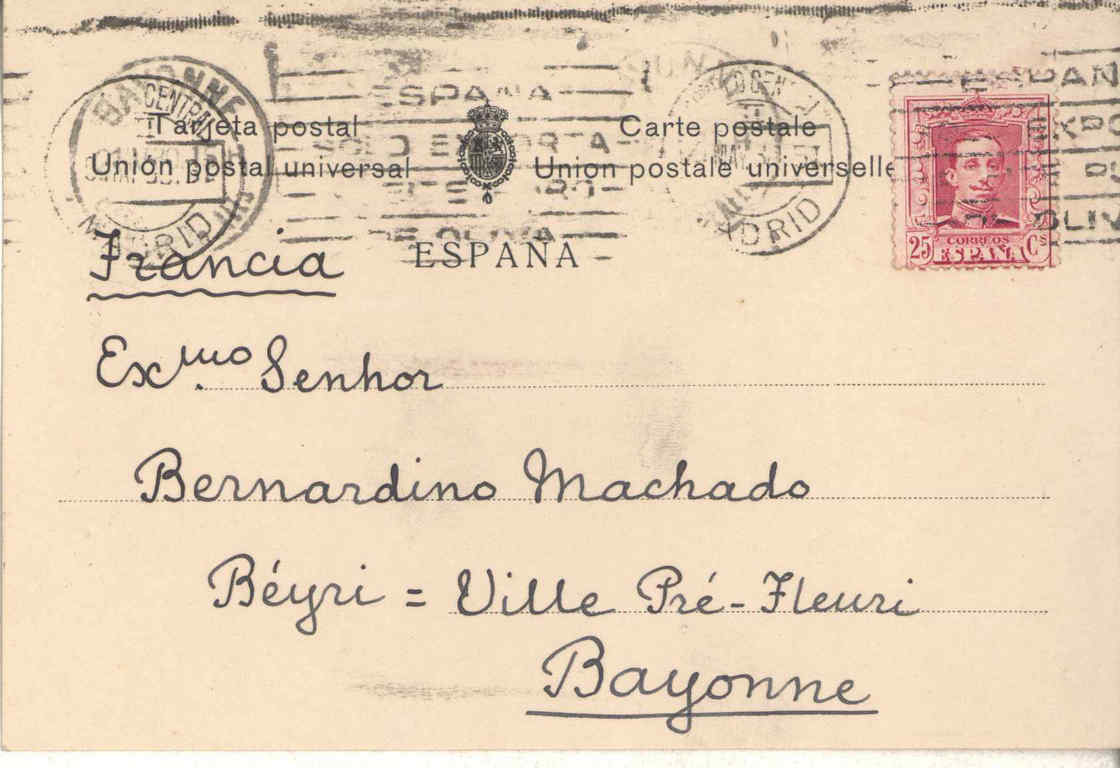 BAYONNE
CENTRAL
MADRID
ESPAÑA
SOLO EXPORTA
DE OLIVA
MADRID
Tarjeta postal
Unión postal universal
Carte postale
Union postale universelle
ESPAÑA
25 CORREOS Cs
ESPAÑA
OLIV
Francia
Exmo. Senhor
Bernardino Machado
Béyri = Ville Pré-Fleuri
Bayonne